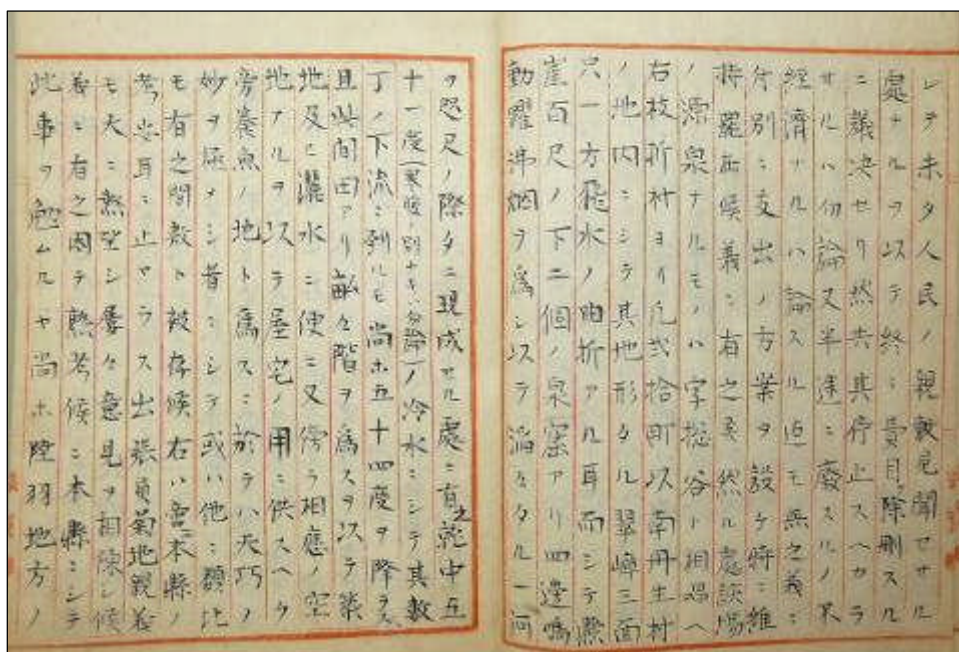 レヲ未タ人民ノ親敷見聞セサル
処ナルヲ以テ終ニ費目除刪スル
ニ議決セリ然共其停止スヘカラ
サルハ勿論又半途ニ廃スルノ不
経済ナルハ論スル迄モ無之義ニ
付別ニ支出ノ方案ヲ設ケ特ニ維
持罷在候義ニ有之候然ル処該場
ノ源泉ナルモノハ字揔谷ト相唱ヘ
右枝折村ヨリ凡弐拾町以南丹生村
ノ地内ニシテ其地形タル翠嶂三面
只一方飛水ノ曲折アル耳而シテ懸
崖百尺ノ下二個ノ泉窟アリ四邊鳴
動躍沸烟ヲ為シ以テ滔々タル一河
ヲ咫尺ノ際タニ現成セル處ニ有之就中五
十一度(寒暖ノ別ナキハ勿論)ノ冷水ニシテ其数
丁ノ下流ニ到ルモ尚ホ五十四度ヲ降ラス
且此間田アリ畝々階ヲ為スヲ以テ築
地及ヒ灑水ニ便ニ又傍ラ相應ノ空
地アルヲ以テ屋宅ノ用ニ供スヘク
旁養魚ノ地ト為スニ於テハ天巧ノ
妙ヲ極メシ者ニシテ或ハ他ニ類比
モ有之間敷ト被存候右ハ啻ニ本縣ノ
考ノミ耳ニ止マラス出張員菊地親義
モ大ニ熱望シ屡々意見ヲ相陳シ候
義ニ有之因テ熟考候ニ本縣ニシテ
此事ヲ勉ムルヤ尚ホ陸羽地方ノ